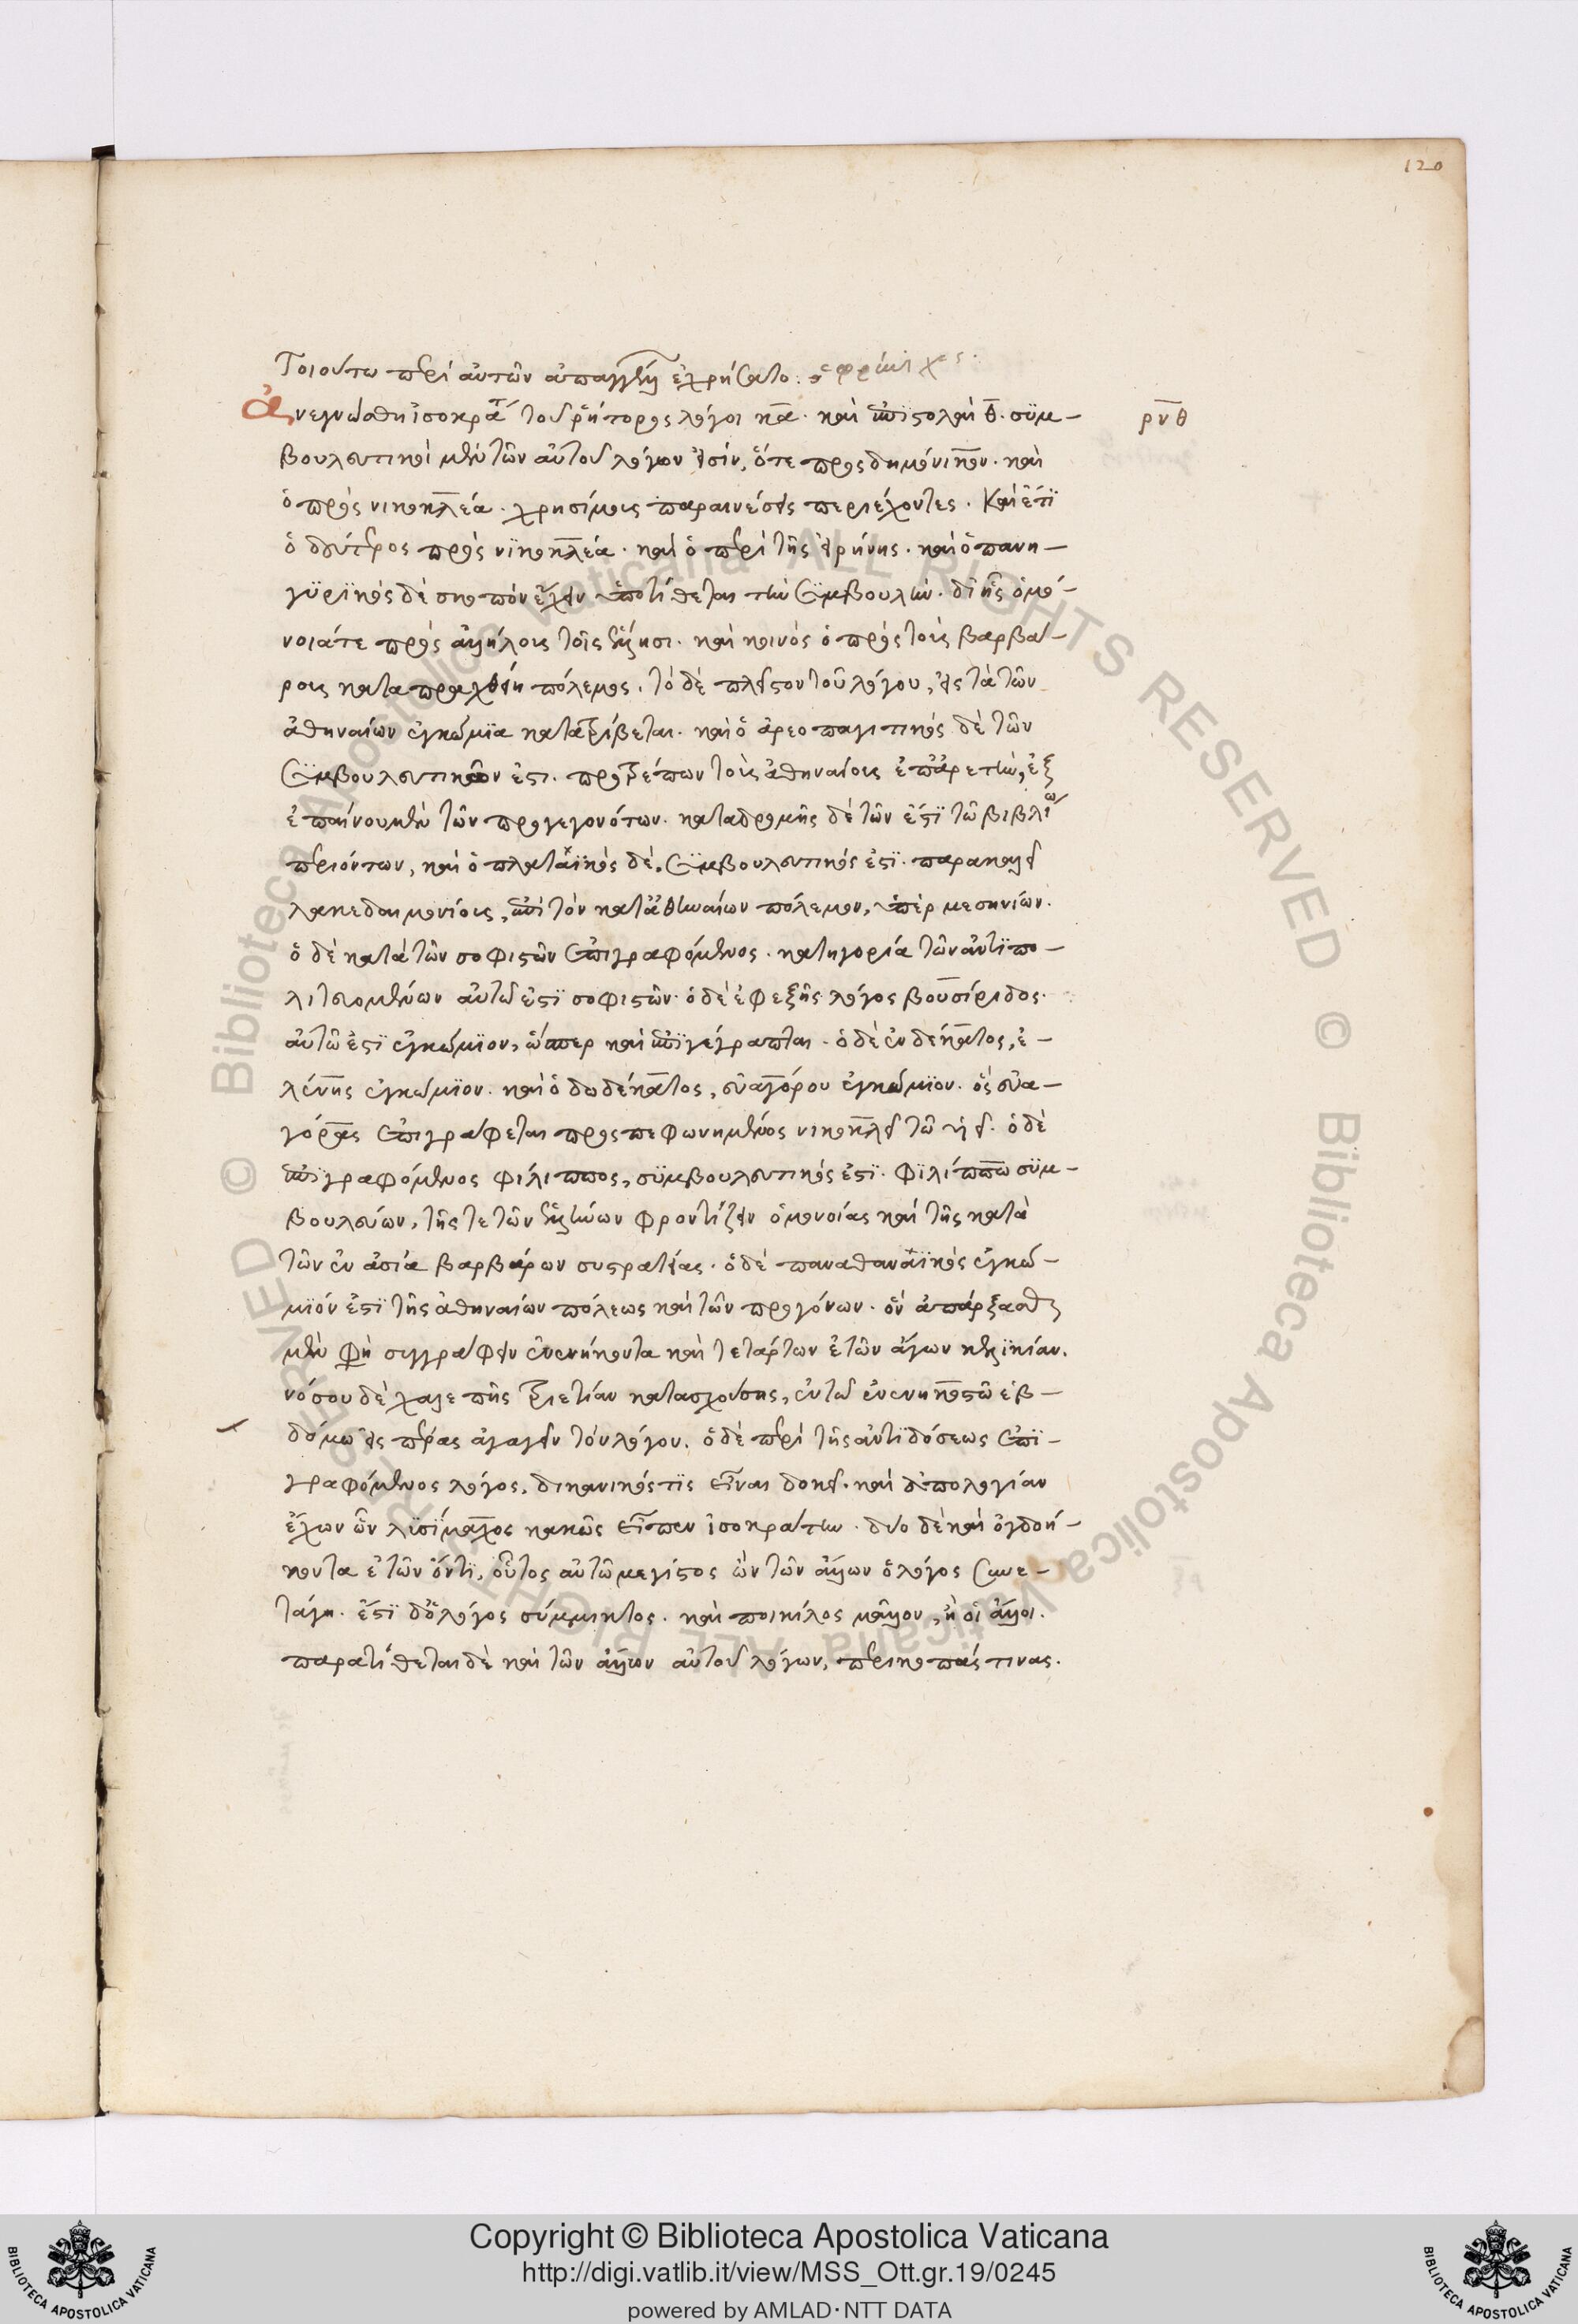 120
Τοιούτω περὶ αὐτῶν ἀπαγγελίη ἐχρήσατο.
Ἀνεγνώσθη ἰσοκράτ τοῦ ῥήτορος λόγοι κα. καὶ ἐπϊστολαὶ θ. σϋμ-
ρνθ
βουλευτικοὶ μὲν τῶν αὐτοῦ λόγων εἰσίν, ὅτε προς δημόνικον. καὶ
ὁ πρὸς νικοκλέα. χρησίμοις παραινέσεις περιέχοντες. Καὶ ἔτϊ
ὁ δεύτερος πρὸς νϊκοκλέα. καὶ ὁ περὶ τῆς εἰρήνης. καὶ ὁ πανη-
γϋρϊκὸς δὲ σκοπὸν ἔχειν ὑποτίθεται τὴν συμβουλὴν. δι ἧς ὁμό-
νοιάτε πρὸς ἀλλήλοις τοῖς ἕλλησι. καὶ κοινὸς ὁ πρὸς τοὺς βαρβά-
ροις καταπραχθείη πόλεμος. τὸ δὲ πλεῖστον τοῦ λόγου, εἰς τὰ τῶν
ἀθηναίων ἐγκώμϊα κατατρίβεται. καὶ ὁ ἀρεοπαγιτικὸς δὲ τῶν
συμβουλευτικῶν ἐστι. προτρέπων τοὺς ἀθηναίοις ἐπ ἀρετὴν, ἐξ
ἐπαίνου μὲν τῶν προγεγονότων. καταδρομῆς δὲ τῶν ἔτϊ τῶ βιβλίω
περιόντων, καὶ ὁ πλαταϊκὸς δὲ. συμβουλευτικός ἐστϊ. παρακαλεῖ
λακεδαιμονίοις, ἐπὶ τὸν κατὰ ἀθηναίων πόλεμον, ὑπὲρ μεσηνίων.
ὁ δὲ κατὰ τῶν σοφιστῶν ἐπιγραφόμενος. κατηγορία τῶν ἀντϊπο-
λιτευομένων αὐτῶ ἐστϊ σοφιστῶν. ὁ δὲ ἐφεξῆς λόγος βουσίριδος.
αὐτῶ ἐστϊ ἐγκώμϊον, ὥσπερ καὶ ἐπϊγέγραπται. ὁ δὲ ἑνδέκατος, ἑ-
λένης ἐγκώμϊον. καὶ ὁ δωδέκατος, εὐαγόρου ἐγκώμϊον. ὃς εὐα-
γόρας ἐπιγράφεται προσπεφωνημένος νικοκλεῖ τῶ υἱεῖ. ὁ δὲ
ἐπϊγραφόμενος φίλιππος, σϋμβουλευτικός ἐστϊ. φϊλίππω σϋμ-
βουλεύων, τῆς τε τῶν ἑλλήνων φροντίζειν ὁμονοίας καὶ τῆς κατὰ
τῶν ἐν ἀσία βαρβάρων συστρατείας. ὁ δὲ παναθαναϊκὸς ἐγκώ-
μϊόν ἐστϊ τῆς ἀθηναίων πόλεως καὶ τῶν προγόνων. ὃν ἀπάρξασθαι
μὲν φησὶ συγγράφειν ἐνενήκοντα καὶ τετάρτων ἐτῶν ἄγων ἡλικϊίαν.
νόσου δὲ χαλεπῆς τριετίαν κατασχούσης, ἐν τῶ ἐνενηκοστῶ ἑβ-
δόμω εἰς πέρας ἀγαγεῖν τὸν λόγον. ὁ δὲ περὶ τῆς ἀντϊδόσεως ἐπϊ-
γραφόμενος λόγος, δικανικός τϊς εἶναι δοκεῖ. καὶ ἀπολογίαν
ἔχων ὧν λϋσίμαχος κακῶς εἶπεν ἰσοκράτην. δύο δὲ καὶ ὀγδοή-
κοντα ἐτῶν ὄντϊ, οὗτος αὐτῶ μεγίστος ὢν τῶν ἄλλων ὁ λόγος συνε-
τάγη. ἔστϊ δ ὁ λόγος σύμμικτος. καὶ ποικίλος μᾶλλον, ἢ οἱ ἄλλοι.
παρατίθεται δὲ καὶ τῶν ἄλλων αὐτοῦ λόγων, περικοπάς τινας.
© Biblioteca Apostolica Vaticana ALL RIGHTS RESERVED © Biblioteca Apostolica Vaticana ALL RIGHTS RESERVED
BIBLIOTECA APOSTOLICA VATICANA
Copyright © Biblioteca Apostolica Vaticana
http://digi.vatlib.it/view/MSS_Ott.gr.19/0245
powered by AMLAD·NTT DATA
BIBLIOTECA APOSTOLICA VATICANA